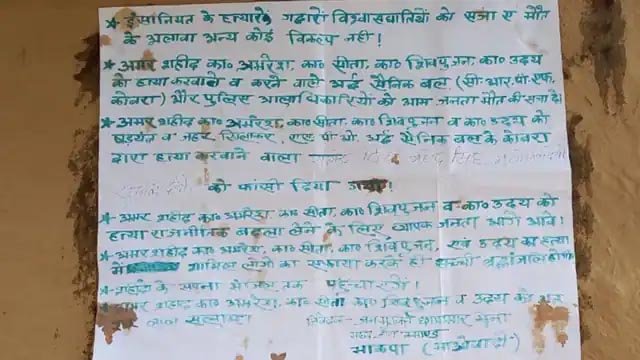 ★ इंसानियत के हत्यारों गद्दारों विश्वासघातियों को सजा ए मौत
के अलावा अन्य कोई विकल्प नहीं!
★ अमर शहीद का० अमरेश, का० सीता, का० शिवपुजन, का० उदय
की हत्या करवाने व करने वाले अर्द्ध सैनिक बल (सी.आर.पी.एफ.
कोबरा) और पुलिस आलाधिकारियों को आम जनता मौत की सजा दें।
★ अमर शहीद का० अमरेश, का० सीता, का० शिवपुजन व का० उदय को
षड्यंत्र व जहर खिलाकर, एस० पी० ओ० अर्द्ध सैनिक बल के कोबरा
द्वारा हत्या करवाने वाला
को फांसी दिया गया!
★ अमर शहीद का० अमरेश, का० सीता, का० शिवपुजन व का० उदय की
हत्या राजनीतिक बदला लेने के लिए व्यापक जनता आगे आवें!
★ अमर शहीद का० अमरेश, का० सीता, का० शिवपुजन, एवं उदय का हत्या
में शामिल लोगों का सफाया करके ही सच्ची श्रद्धांजलि होगी
★ शहीदों के सपना मंजिल तक पहुंचाएंगे!
अमर शहीद का० अमरेश, का० सीता का० शिवपुजन व उदय को
लाल सलाम!
निवेदक - जनमुक्ति छापामार सेना
भाकपा (माओवादी)